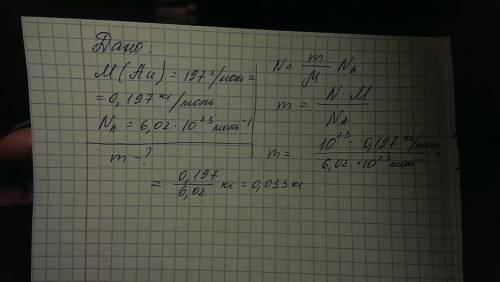 Дано:
M(Au) = 197 г/моль =
= 0,197 кг/моль
N_A = 6,02 · 10²³ моль⁻¹
m – ?
N = m/M N_A
m = N · M / N_A
m = 10²³ · 0,197 кг/моль / 6,02 · 10²³ моль⁻¹ =
= 0,197/6,02 кг = 0,033 кг